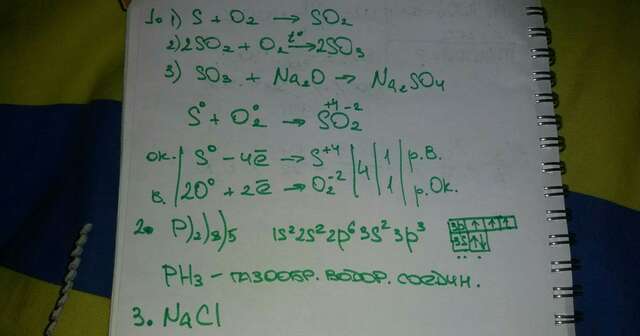 1. 1) S + O₂ → SO₂
2) 2SO₂ + O₂ →t° 2SO₃
3) SO₃ + Na₂O → Na₂SO₄
S⁰ + O₂⁰ → S⁺⁴O₂⁻²
ок. | S⁰ - 4ē → S⁺⁴ | 4 | 1 | р.В.
в. | 2O⁰ + 2ē → O₂⁻² | | 1 | р.Ок.
2. P)₂)₈)₅ 1s² 2s² 2p⁶ 3s² 3p³ 3p ↑ ↑ ↑
3s ↑↓
PH₃ - газообр. водор. соедин.
3. NaCl